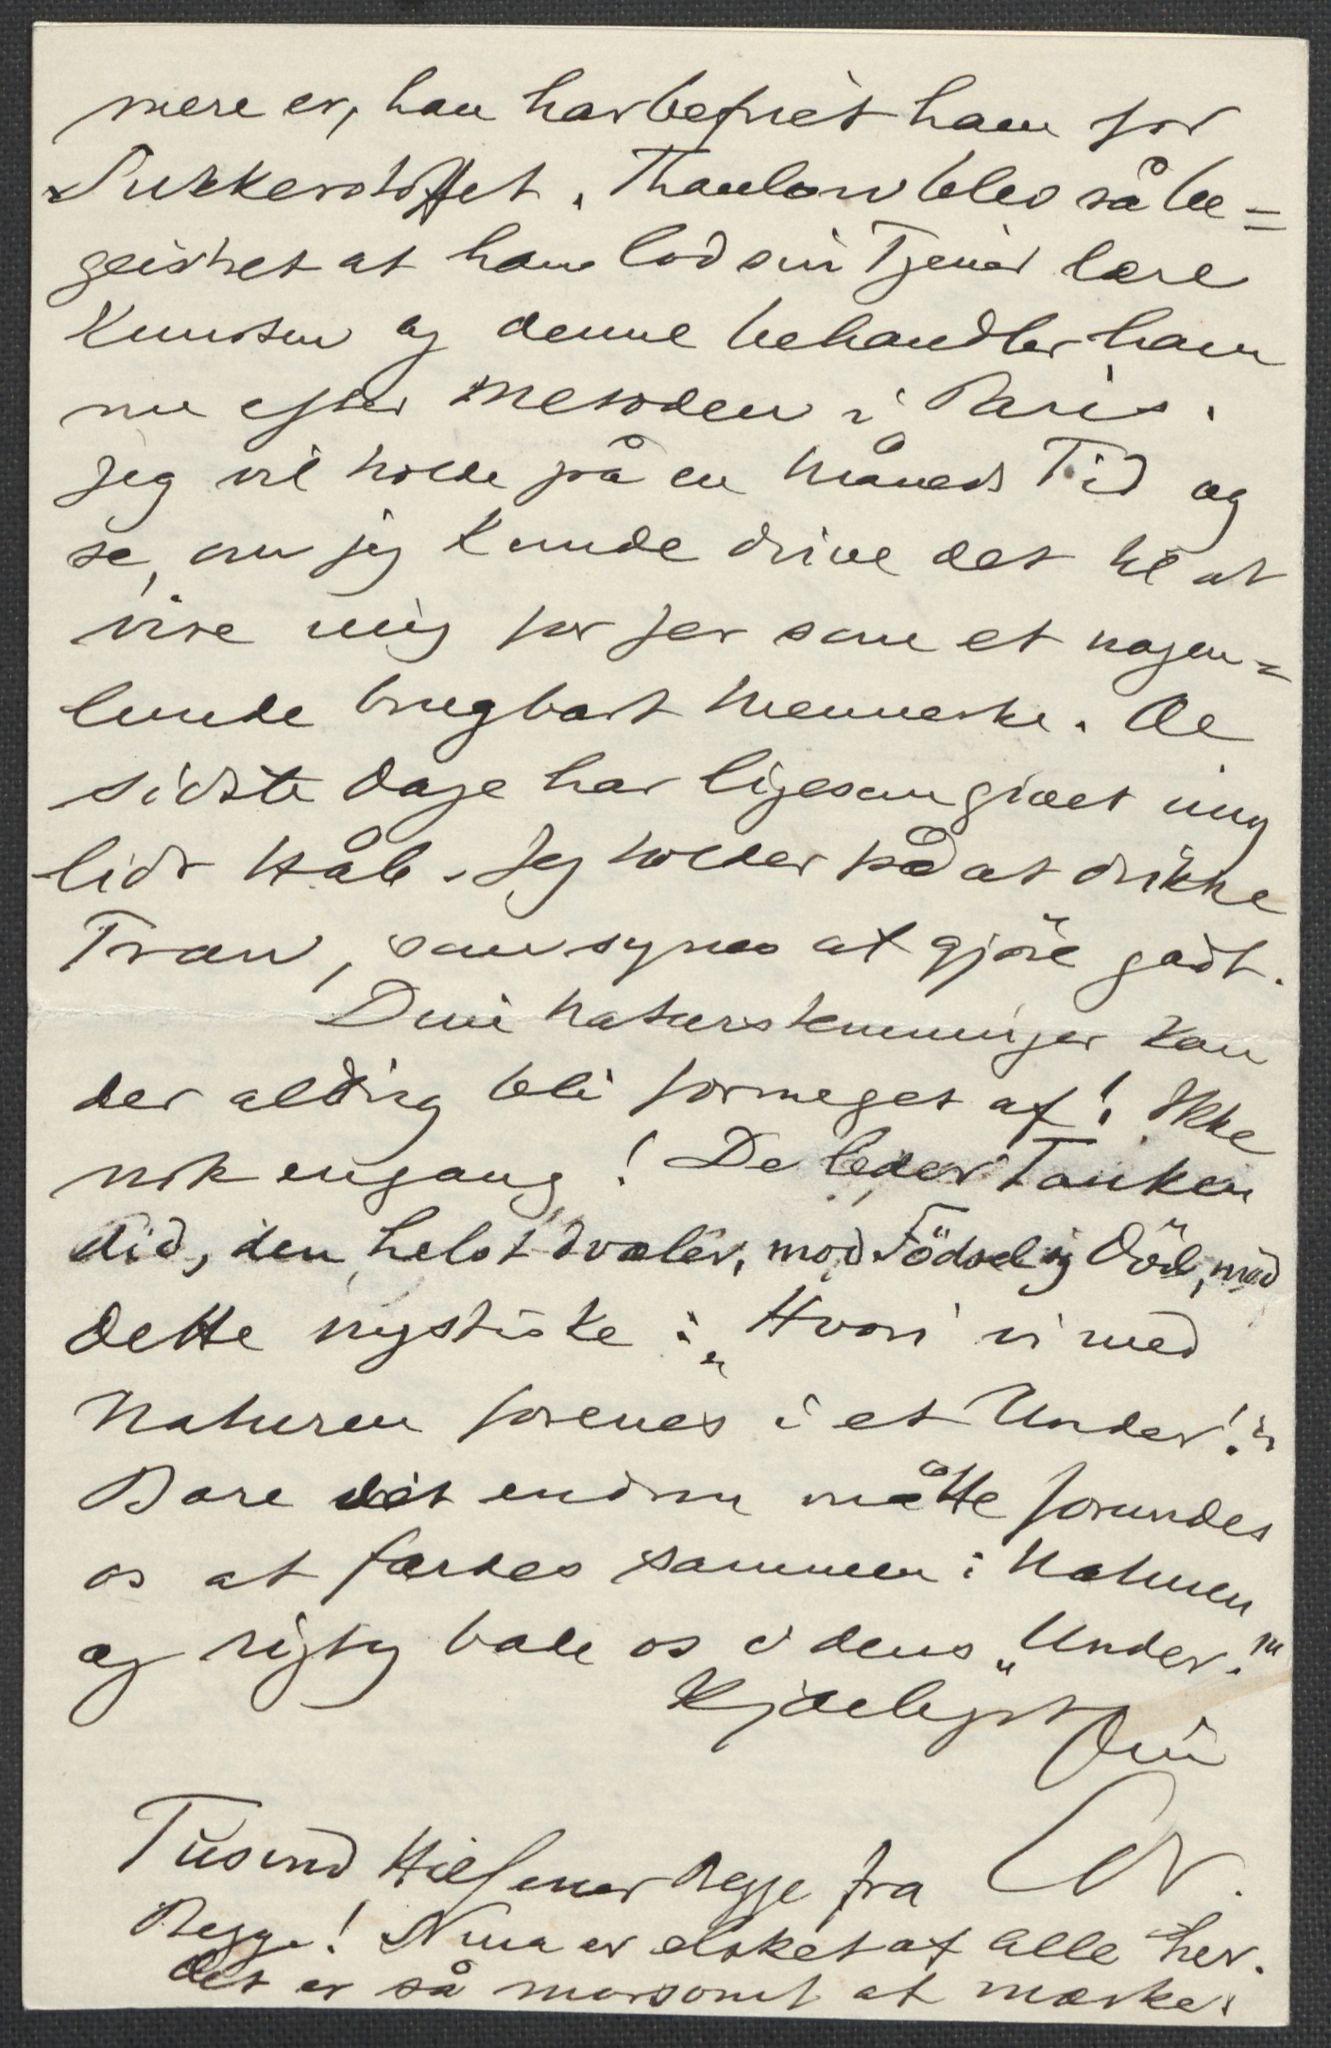 mere er, han har befriet ham for
Sukkerstoffet. Thaulow blev så be=
geistret at han lod sin Tjener lære
Kunsten og denne behandler ham
nu efter Metoden i Paris.
Jeg vil holde på en Måneds Tid og
se, om jeg kunde drive det til at
vise mig for Jer som et nogen=
lunde brugbart Menneske. De
sidste Dage har ligesom givet mig
lidt Håb. Jeg holder på at drikke
Tran, som synes at gjöre godt.
Dine Naturstemninger kan
der aldrig bli formeget af! Ikke
nok engang! De leder Tanken
did, den helst dvæler, mod Födsel og Död, mod
dette mystiske: „Hvori vi med
Naturen forenes i et Under!“
Bare det endnu måtte forundes
os at færdes sammen i Naturen
og rigtig bade os i dens „Under“.
Kjærligst Din
Tusind Hilsener Begge fra
Begge! Nina er elsket af alle her.
Det er så morsomt at mærke.